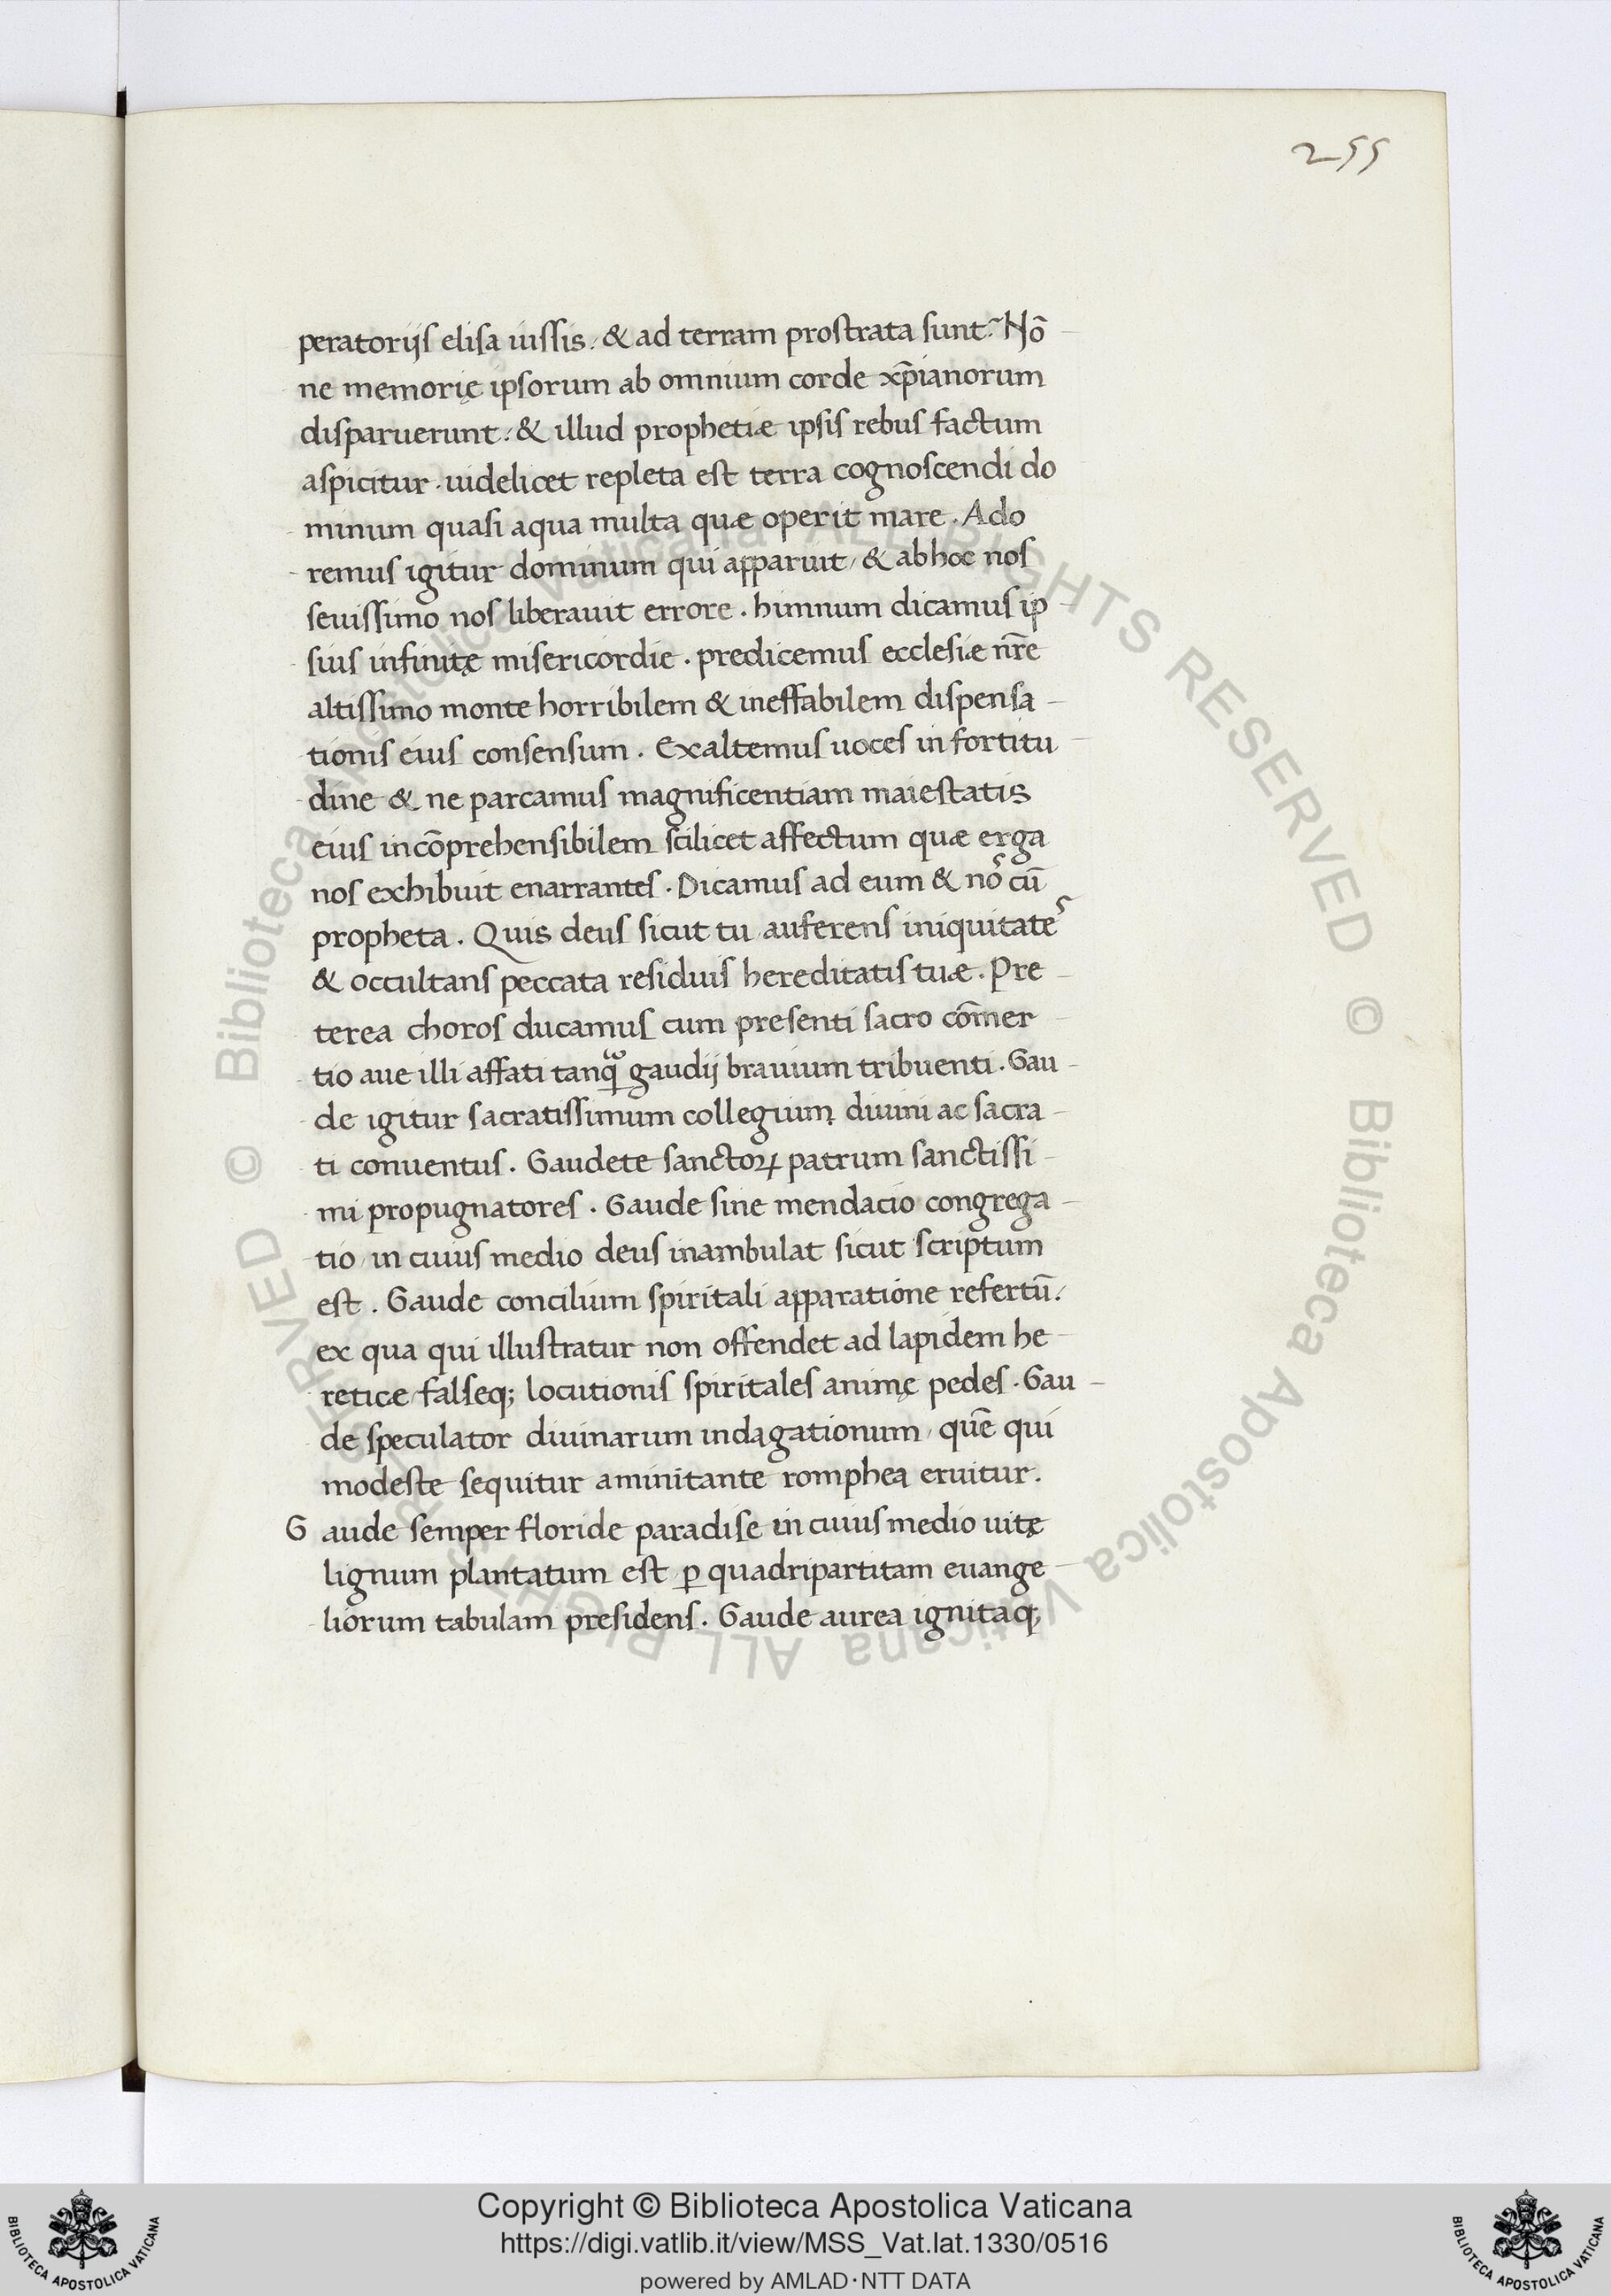 255
peratorijs elisa iussis · & ad terram prostrata sunt? Nō
ne memorię ipsorum ab omnium corde xp̄ianorum
disparuerunt · & illud prophetiæ ipsis rebus factum
aspicitur · uidelicet repleta est terra cognoscendi do
minum quasi aqua multa quæ operit mare . Ado
remus igitur dominum qui apparuit / & ab hoc nos
seuissimo nos liberauit errore . himnum dicamus ip
sius infinitę misericordie . predicemus ecclesiæ nr̄e
altissimo monte horribilem & ineffabilem dispensa-
tionis eius consensum . Exaltemus uoces in fortitu-
dine & ne parcamus magnificentiam maiestatis
eius incōprehensibilem scilicet affectum quæ erga
nos exhibuit enarrantes . Dicamus ad eum & nos cū
propheta . Quis deus sicut tu auferens iniquitates
& occultans peccata residuis hereditatis tuæ . Pre-
terea choros ducamus cum presenti sacro cōmer
tio aue illi affati tanqͣ gaudij brauium tribuenti . Gau-
de igitur sacratissimum collegium diuini ac sacra-
ti conuentus . Gaudete sanctoꝝ patrum sanctissi-
mi propugnatores . Gaude sine mendacio congrega-
tio / in cuius medio deus inambulat sicut scriptum
est . Gaude concilium spiritali apparatione refertū ·
ex qua qui illustratur non offendet ad lapidem he-
reticæ falseq; locutionis spiritales animę pedes . Gau-
de speculator diuinarum indagationum / quē qui
modeste sequitur a minitante romphea eruitur .
Gaude semper floride paradise in cuius medio uitę
lignum plantatum est ꝑ quadripartitam euange-
liorum tabulam presidens . Gaude aurea ignitaq;
© Biblioteca Apostolica Vaticana ALL RIGHTS RESERVED © Biblioteca Apostolica Vaticana ALL RIGHTS RESERVED
Copyright © Biblioteca Apostolica Vaticana
https://digi.vatlib.it/view/MSS_Vat.lat.1330/0516
powered by AMLAD·NTT DATA
BIBLIOTECA APOSTOLICA VATICANA
BIBLIOTECA APOSTOLICA VATICANA